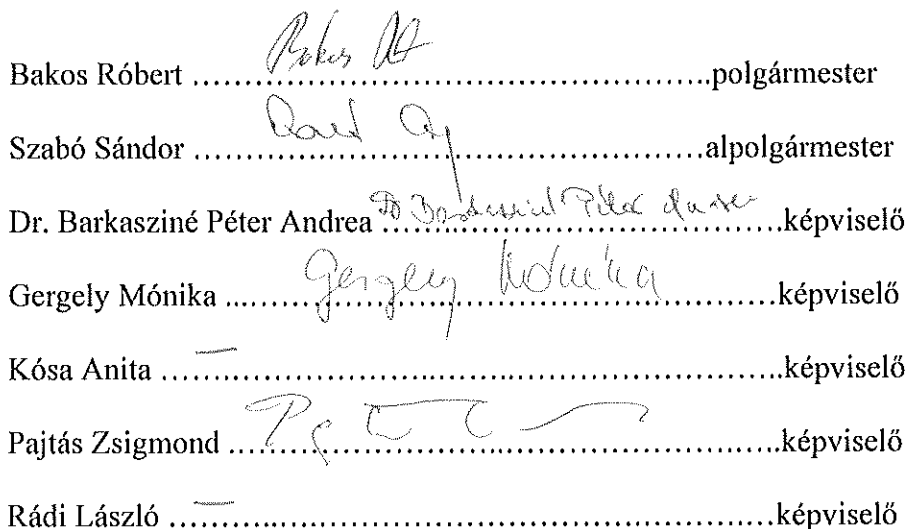 Bakos Róbert ................................................polgármester
Szabó Sándor ................................................alpolgármester
Dr. Barkasziné Péter Andrea ................................................képviselő
Gergely Mónika ... Gergely Mónika ................................................képviselő
Kósa Anita – ................................................képviselő
Pajtás Zsigmond ................................................képviselő
Rádi László – ................................................képviselő